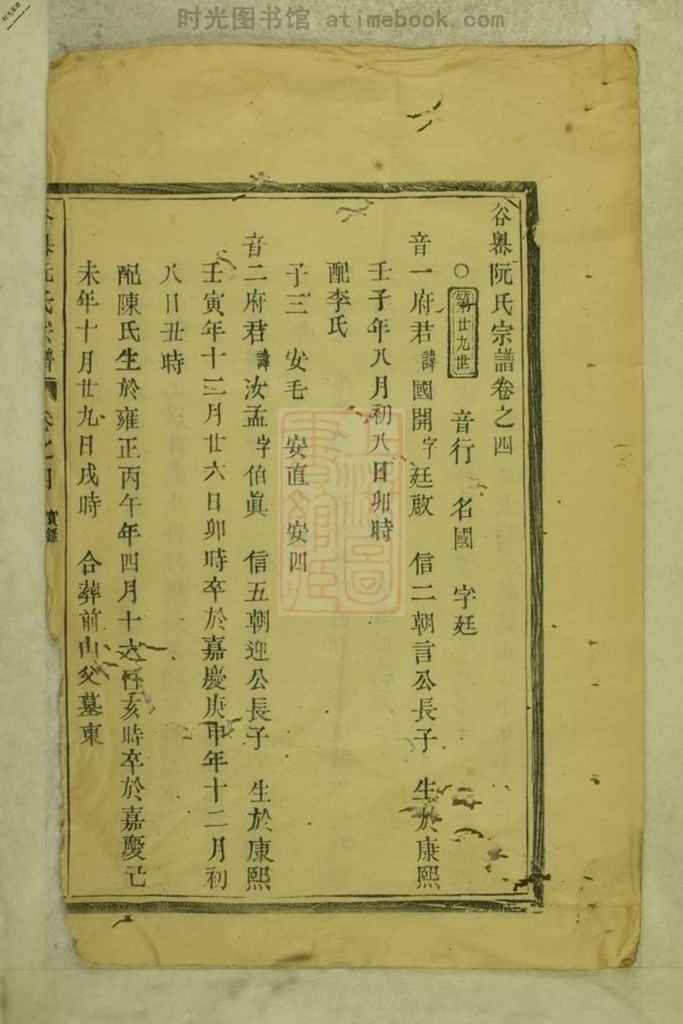 时光图书馆 atimebook.com
谷嶴阮氏宗譜卷之四
○第廿九世 音行 名國 字廷
音一府君諱國開字廷啟 信二朝言公長子 生於康熙
壬子年八月初八日卯時
配李氏
子三 安毛 安直 安四
音二府君諱汝孟字伯眞 信五朝迎公長子 生於康熙
壬寅年十二月廿六日卯時卒於嘉慶庚申年十二月初
八日丑時
配陳氏生於雍正丙午年四月十六日亥時卒於嘉慶己
未年十月廿九日戌時 合葬前山父墓東
谷嶴阮氏宗譜 卷之四 實錄